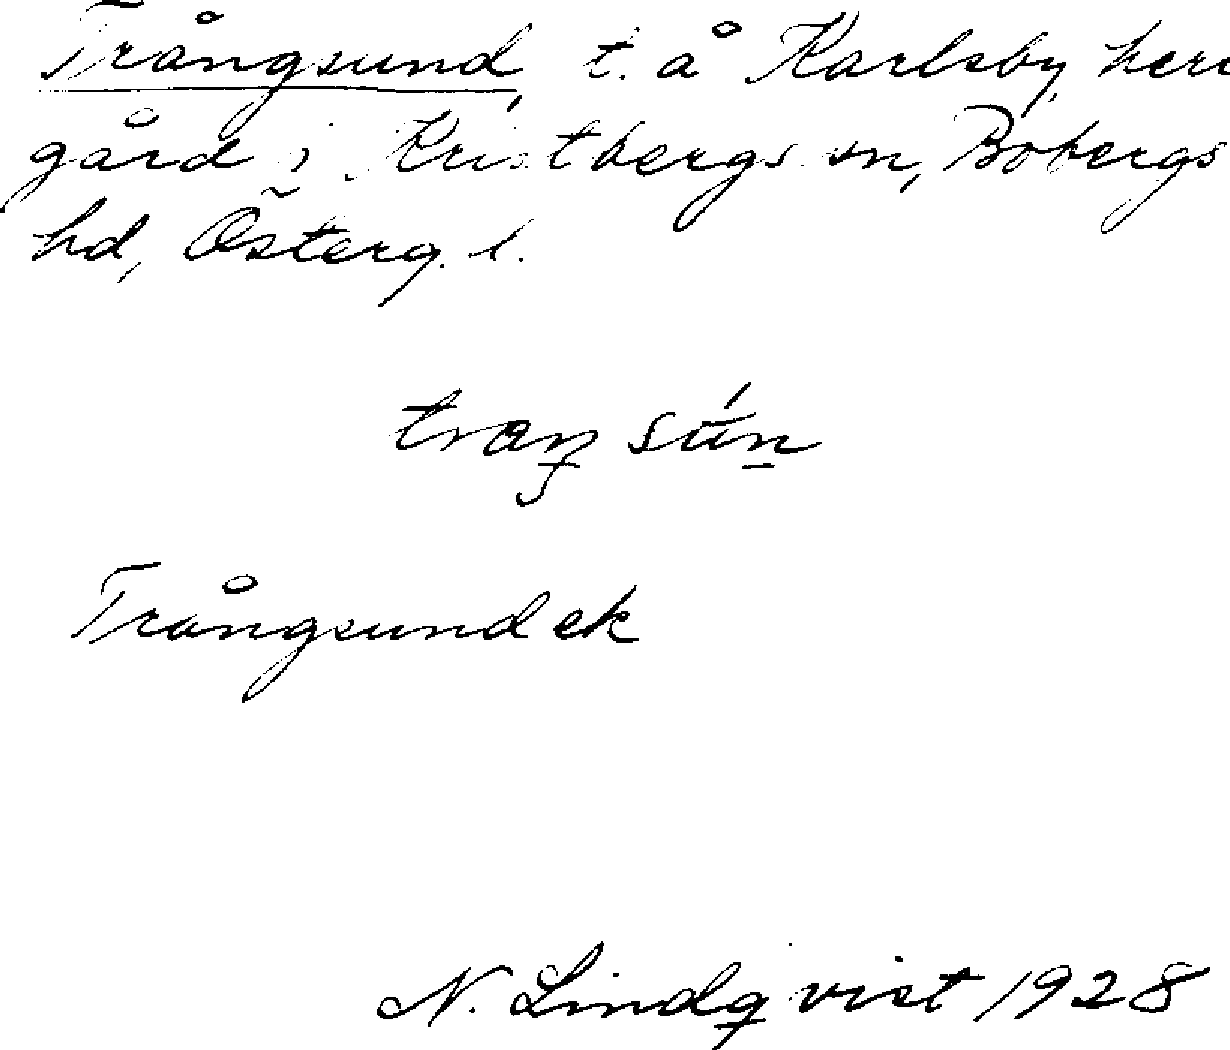 Trångsund, t. å Karlsby herr
gård i Kristbergs sn, Bobergs
hd, Österg. l.
Trångsund ek
N. Lindqvist 1928